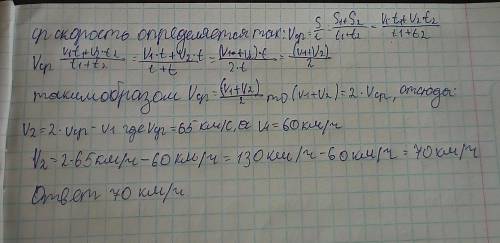 ср скорость определяется так: Vср = S/t = S1+S2/t1+t2 = V1·t1+V2·t2/t1+t2
Vср V1·t1+V2·t2/t1+t2 = V1·t+V2·t/t+t = (V1+V2)·t/2·t = (V1+V2)/2
таким образом Vср = (V1+V2)/2 то (V1+V2) = 2·Vср, отсюда:
V2 = 2·Vср - V1 где Vср = 65 км/с, а V1 = 60 км/ч
V2 = 2·65 км/ч - 60 км/ч = 130 км/ч - 60 км/ч = 70 км/ч
Ответ 70 км/ч